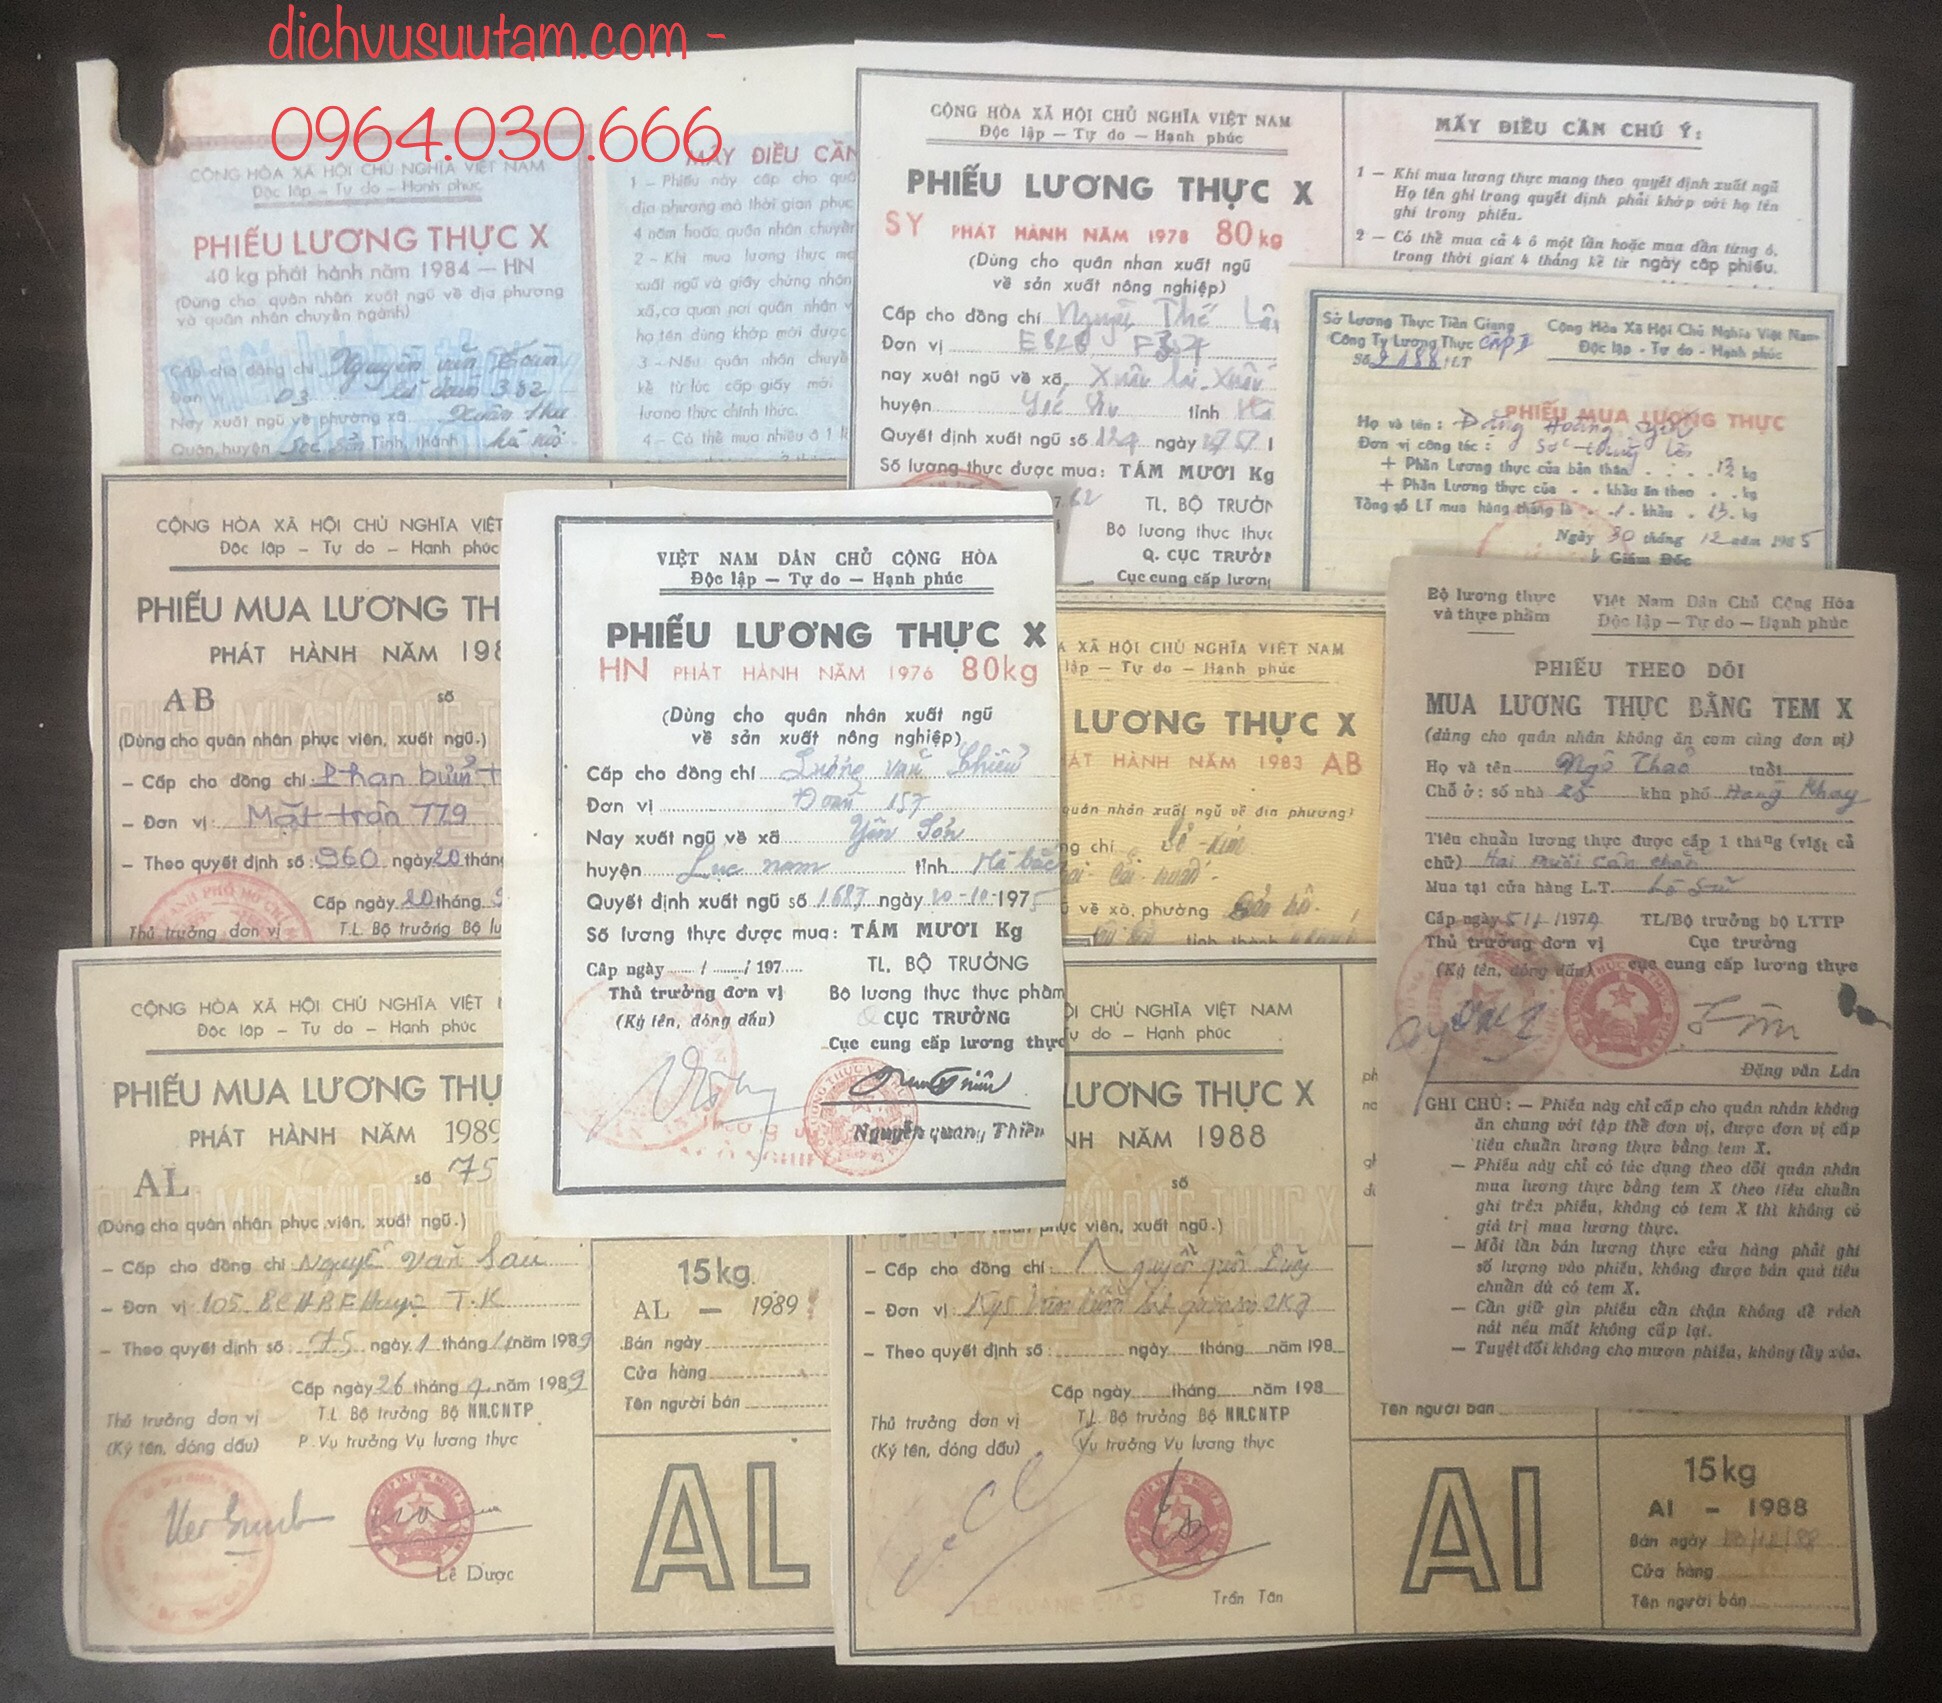 dichvusuutam.com -
0964.030.666
CỘNG HÒA XÃ HỘI CHỦ NGHĨA VIỆT NAM
Độc lập - Tự do - Hạnh phúc
PHIẾU LƯƠNG THỰC X
40 kg phát hành năm 1984 - HN
(Dùng cho quân nhân xuất ngũ về địa phương
và quân nhân chuyển ngành)
Cấp cho đồng chí Nguyễn văn
Đơn vị D3
Nay xuất ngũ về phường xã Xuân thu
Quận, huyện Sóc sơn Tỉnh, thành hà nội
MẤY ĐIỀU CẦN
1 - Phiếu này cấp cho quâ
địa phương mà thời gian phục
4 năm hoặc quân nhân chuyển
2 - Khi mua lương thực ma
xuất ngũ và giấy chứng nhận
xã, cơ quan nơi quân nhân v
họ tên đúng khớp mới được
3 - Nếu quân nhân chuyể
kể từ lúc cấp giấy mới
lương thực chính thức.
4 - Có thể mua nhiều ô 1 l
CỘNG HÒA XÃ HỘI CHỦ NGHĨA VIỆT NAM
Độc lập - Tự do - Hạnh phúc
PHIẾU LƯƠNG THỰC X
SY PHÁT HÀNH NĂM 1978 80kg
(Dùng cho quân nhan xuất ngũ
về sản xuất nông nghiệp)
Cấp cho đồng chí Nguyễn Thế
Đơn vị E828
nay xuât ngũ về xã, Xuân lai
huyện tỉnh
Quyết định xuất ngũ số ngày
Số lương thực được mua: TÁM MƯƠI Kg
TL. BỘ TRƯỞN
Bộ lương thực thực
Q. CỤC TRƯỞN
Cục cung cấp lương
MẤY ĐIỀU CẦN CHÚ Ý:
1 - Khi mua lương thực mang theo quyết định xuất ngũ
Họ tên ghi trong quyết định phải khớp với họ tên
ghi trong phiếu.
2 - Có thể mua cả 4 ô một lần hoặc mua dần từng ô,
trong thời gian 4 tháng kể từ ngày cấp phiếu.
Sở Lương Thực Tiền Giang
Công Ty Lương Thực CẤP I
Số 2188 /LT
Cộng Hòa Xã Hội Chủ Nghĩa Việt Nam
Độc lập - Tự do - Hạnh phúc
PHIẾU MUA LƯƠNG THỰC
Họ và tên: Đặng Hoàng
Đơn vị công tác:
+ Phần Lương thực của bản thân 13 kg
+ Phần Lương thực của . . khẩu ăn theo . . kg
Tổng số LT mua hàng tháng là . 1 . khẩu . 13. kg
Ngày 30 tháng 12 năm 1985
Giám Đốc
CỘNG HÒA XÃ HỘI CHỦ NGHĨA VIỆT
Độc lập - Tự do - Hạnh phúc
PHIẾU MUA LƯƠNG TH
PHÁT HÀNH NĂM 198
AB số
(Dùng cho quân nhân phục viên, xuất ngũ.)
- Cấp cho đồng chí: Phan
- Đơn vị: Mặt trận 779
- Theo quyết định số: 960 ngày 20 thán
Cấp ngày 20 tháng
Thủ trưởng đơn vị T.L. Bộ trưởng Bộ lư
VIỆT NAM DÂN CHỦ CỘNG HÒA
Độc lập - Tự do - Hạnh phúc
PHIẾU LƯƠNG THỰC X
HN PHÁT HÀNH NĂM 1976 80kg
(Dùng cho quân nhân xuất ngũ
về sản xuất nông nghiệp)
Cấp cho đồng chí Lương văn Chiểu
Đơn vị Đoàn 157
Nay xuất ngũ về xã Yên Sơn
huyện Lục nam tỉnh Hà bắc
Quyết định xuất ngũ số 1687 ngày 20-10-1975
Số lương thực được mua: TÁM MƯƠI Kg
Cấp ngày / / 197
TL. BỘ TRƯỞNG
Thủ trưởng đơn vị
Bộ lương thực thực phẩm
(Ký tên, đóng dấu)
CỤC TRƯỞNG
Cục cung cấp lương thực
Nguyễn quang Thiên
A XÃ HỘI CHỦ NGHĨA VIỆT NAM
lập - Tự do - Hạnh phúc
LƯƠNG THỰC X
ÁT HÀNH NĂM 1983 AB
quân nhân xuất ngũ về địa phương)
ng chí
ũ về xã, phường
tỉnh thành
Bộ lương thực
và thực phẩm
Việt Nam Dân Chủ Cộng Hòa
Độc lập - Tự do - Hạnh phúc
PHIẾU THEO DÕI
MUA LƯƠNG THỰC BẰNG TEM X
(dùng cho quân nhân không ăn cơm cùng đơn vị)
Họ và tên Ngô Thảo tuổi
Chỗ ở: số nhà 25 khu phố Hàng Khay
Tiêu chuẩn lương thực được cấp 1 tháng (viết cả
chữ) Hai mươi cân chẵn
Mua tại cửa hàng L.T. Lò Sũ
Cấp ngày 5/1/1974 TL/Bộ trưởng bộ LTTP
Thủ trưởng đơn vị Cục trưởng
(Ký tên, đóng dấu) cục cung cấp lương thực
Đặng văn Lân
GHI CHÚ: - Phiếu này chỉ cấp cho quân nhân không
ăn chung với tập thể đơn vị, được đơn vị cấp
tiêu chuẩn lương thực bằng tem X.
- Phiếu này chỉ có tác dụng theo dõi quân nhân
mua lương thực bằng tem X theo tiêu chuẩn
ghi trên phiếu, không có tem X thì không có
giá trị mua lương thực.
- Mỗi lần bán lương thực cửa hàng phải ghi
số lượng vào phiếu, không được bán quá tiêu
chuẩn dù có tem X.
- Cần giữ gìn phiếu cẩn thận không để rách
nát nếu mất không cấp lại.
- Tuyệt đối không cho mượn phiếu, không tẩy xóa.
CỘNG HÒA XÃ HỘI CHỦ NGHĨA VIỆT
Độc lập - Tự do - Hạnh phúc
PHIẾU MUA LƯƠNG THỰ
PHÁT HÀNH NĂM 1989
AL số 75
(Dùng cho quân nhân phục viên, xuất ngũ.)
- Cấp cho đồng chí Nguyễn Văn Sáu
- Đơn vị: 105 T.K
- Theo quyết định số: 75 ngày 1 tháng năm 1989
Cấp ngày 26 tháng 4 năm 1989
Thủ trưởng đơn vị T.L Bộ trưởng Bộ NN.CNTP
(Ký tên, đóng dấu) P. Vụ trưởng Vụ lương thực
Lê Dược
15kg
AL - 1989
Bán ngày
Cửa hàng
Tên người bán
AL
I CHỦ NGHĨA VIỆT NAM
ự do - Hạnh phúc
LƯƠNG THỰC X
NH NĂM 1988
số
ục viên, xuất ngũ.)
- Cấp cho đồng chí:
- Đơn vị:
- Theo quyết định số: ngày tháng năm 198
Cấp ngày tháng năm 198
Thủ trưởng đơn vị T.L. Bộ trưởng Bộ NN.CNTP
(Ký tên, đóng dấu) Vụ trưởng Vụ lương thực
Trần Tân
Tên người bán
AI
15kg
AI - 1988
Bán ngày
Cửa hàng
Tên người bán